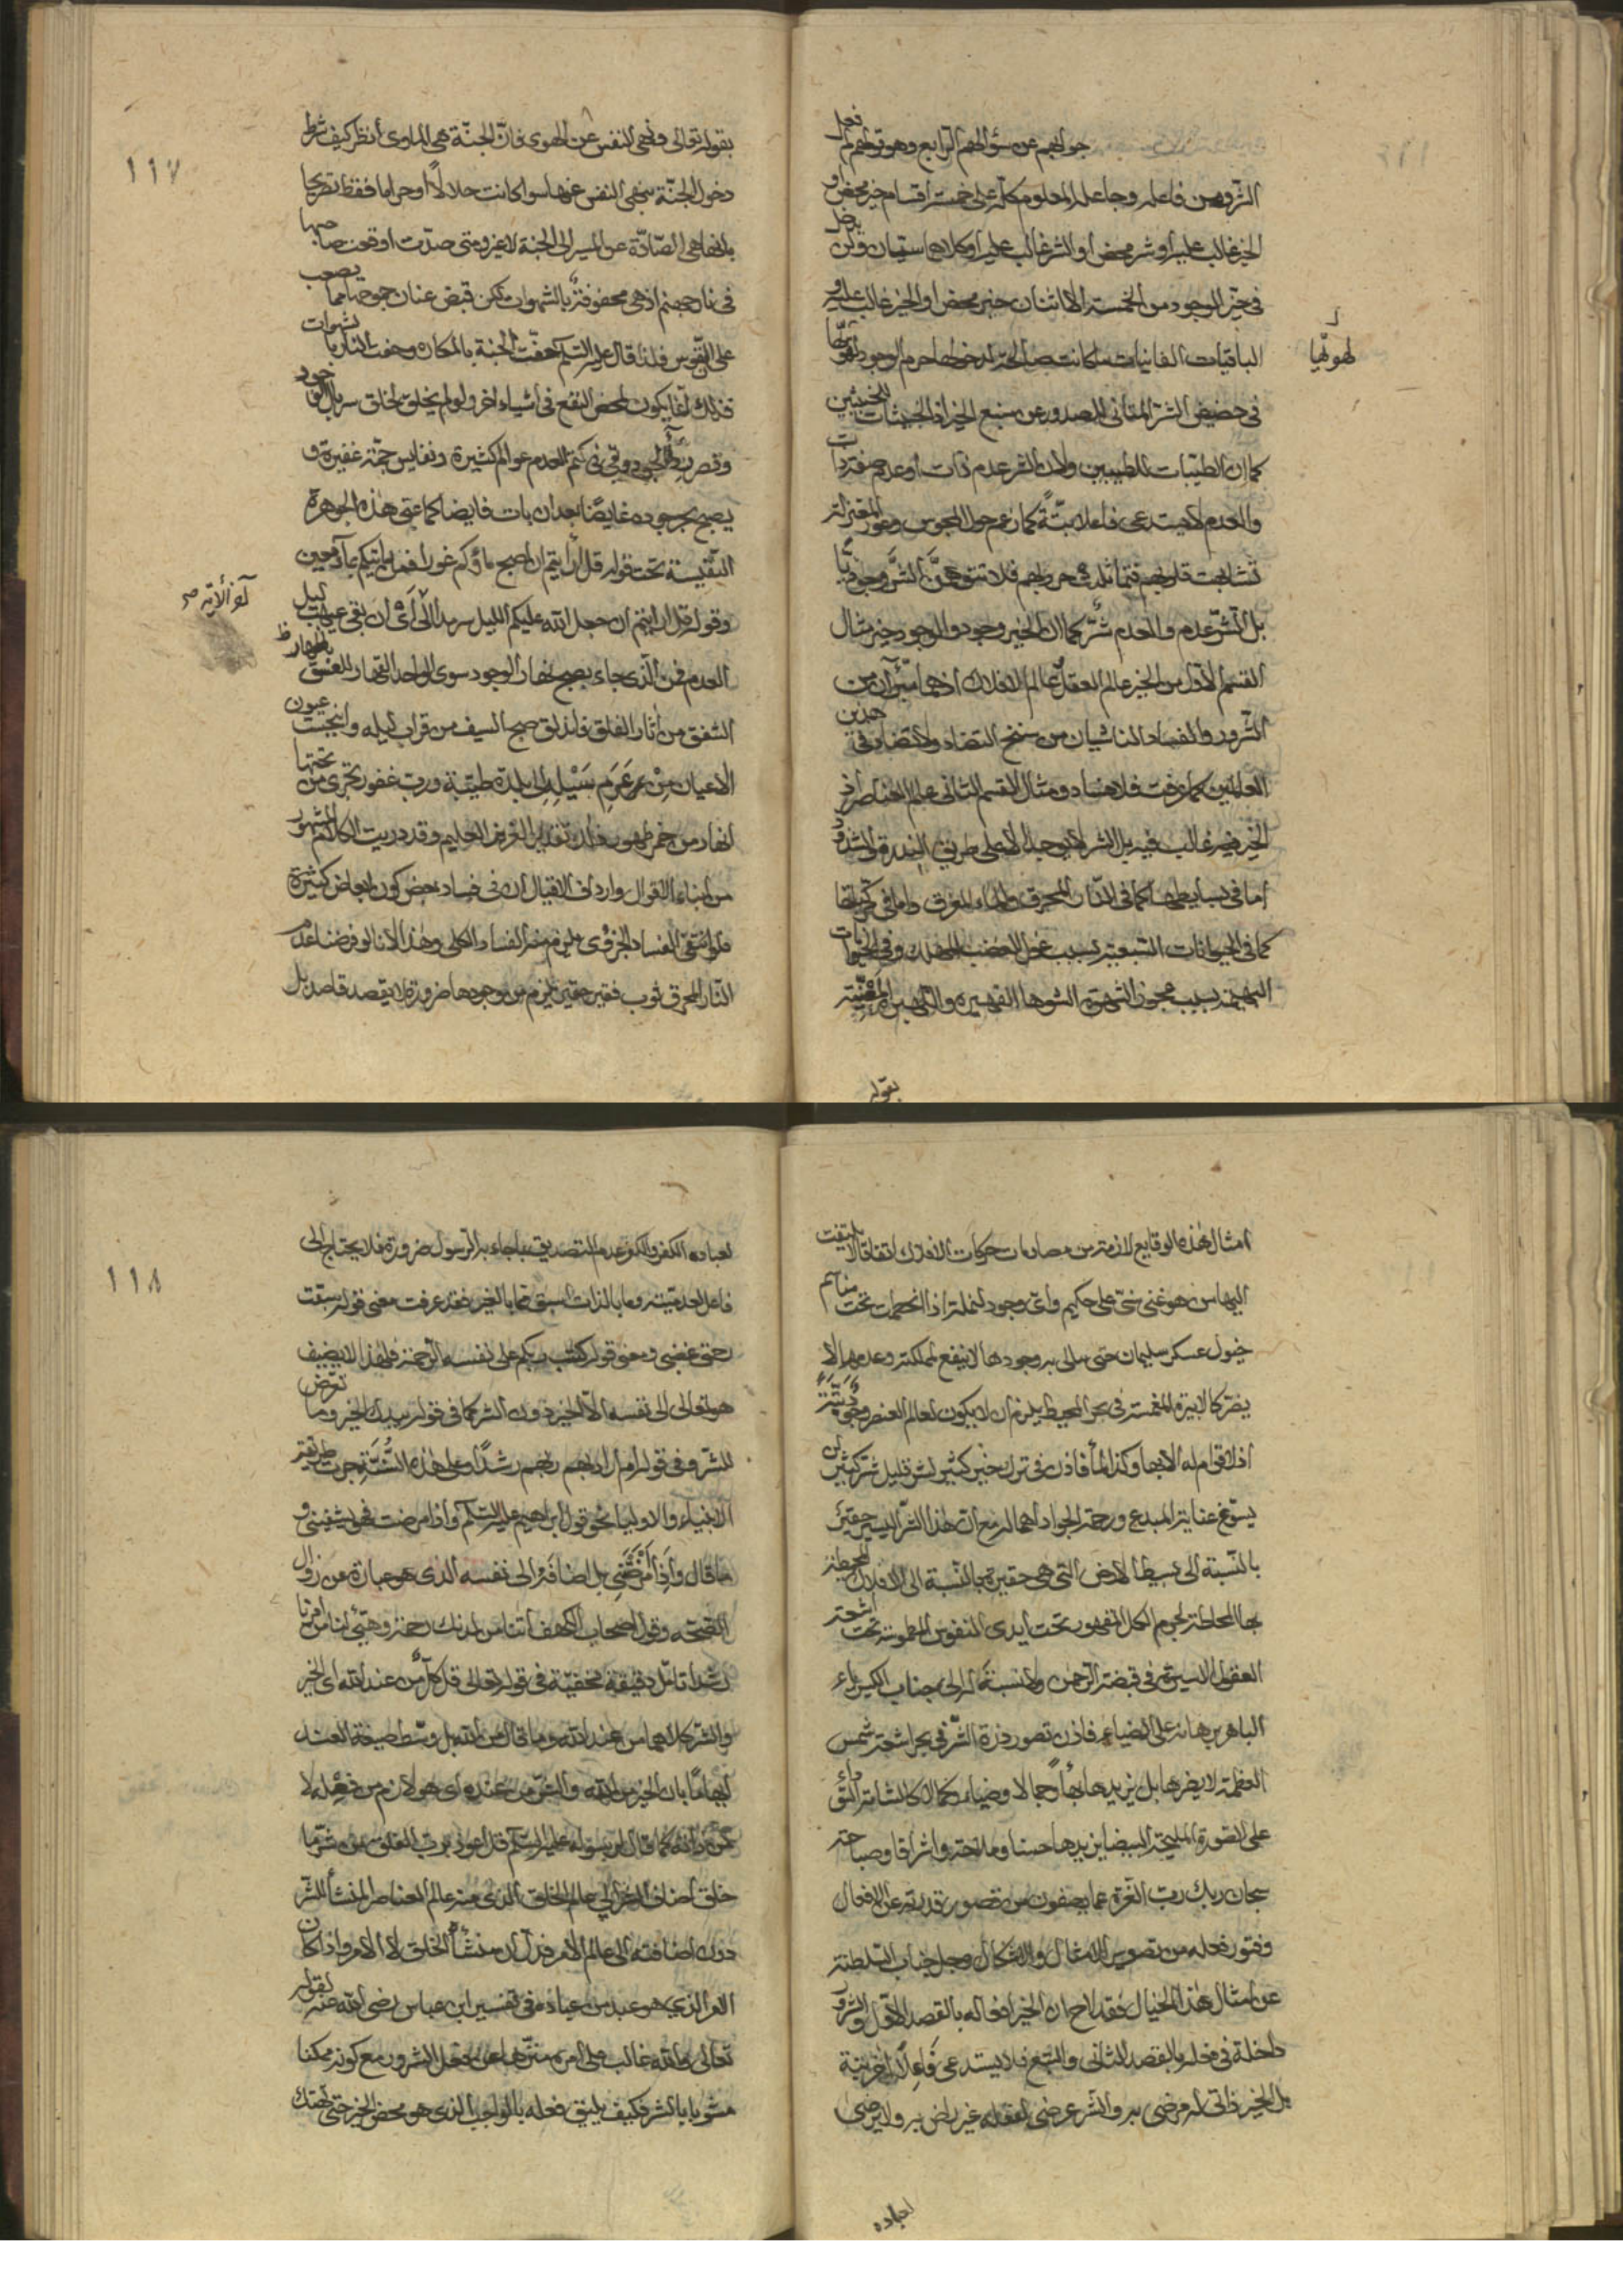 جوابهم عن سؤالهم الرابع وهو قولهم لم فعل
الشر وهن فاعله وجاعله المعلوم كله على خمسة اقسام خير محض او
الخير غالب عليه او شر محض او الشر غالب عليه او كلاهما سيان ولن يدخل
فى حيّز الوجود من الخمسة الا اثنان خير محض او الخير غالب عليه و
الباقيات الفانيات ما كانت الوجود لهويّها
لهويّها
فى حضيض الشر المنافى للصدور عن منبع الخير اذ الخبيثات للخبيثين
كما ان الطيّبات للطيبين ولان الشر عدم ذات او عدم صفة ذات
والعدم لا يستدعى فاعلا بتّةً كما زعم حول المجوس وعور المعتزلة
تشابهت قلوبهم فلا تتوهمنّ الشّر وجوديّا
بل الشر عدم والعدم شرّ كما ان الخير وجود والوجود خير مثال
القسم الاول من الخير عالم العقل وعالم الافلاك اذ هما مبرّآن من
الشرور والفساد الناشيان من سنخ التضاد ولا تضاد فى هذين
العالمين كما عرفت فلا فساد ومثال القسم الثانى عالم العناصر اذ
الخير فيه غالب فيه بل الشر لا يوجد الا على طريق الندرة والشذوذ
اما فى بسايطها كما فى النار المحرق والماء المغرق واما فى مركّباتها
كما فى الحيوانات السبعية بسبب الغضب المهلك وفى الحيوانات
البهيمة بسبب الشهوة الشوها
بقوله
١١٧
بقوله تعالى ونهى النفس عن الهوى فانّ الجنّة هى الماوى انظر كيف شرط
دخول الجنّة بنهى النفس عنها سوا كانت حلالاً او حراما فقط تصريحا
بانها هى الصّادّة عن السير الى الجنة لا غير ومتى صدّت اوقعت صاحبها
فى نار جهنم اذ هى محفوفة بالشهوات لكن قبض عنان جوحها مما يصعب
على النفوس فلذا قال عليه السّلم حفّت الجنة بالمكاره وحفت النار بالشهوات
فذلك انما يكون لمحض النفع فى اشياء اخر ولو لم يخلق لخلق سربال الوجود
وقصر رداء الجود وبقى فى كتم العدم عوالم كثيرة ونفايس جمّة غفيرة و
يصبح بحر جوده غايضا بعد ان بات فايضا كما عنى هذه الجوهرة
النفيسة تحت قوله قل ارايتم ان اصبح ماؤكم غورا فمن ياتيكم بماء معين
وقوله قل ارايتم ان جعل الله عليكم الليل سرمدا الى اى ان بقى غيهب ليل
آخر الاية صح
العدم فمن الّذى جاء بصبح نهار الوجود سوى الواحد القهار
الشفق من آثار الفلق فانفلق صبح السيف من قراب ليله وانبجست عيون
الاعيان مِنْ عرم سَيْلِه الى بلدة طيّبة ورب غفور تجرى من تحتها
انهار من خمر طهور ذلك تقدير العزيز العليم وقد دريت الكلام المشهور
من ابناء الاقوال وارداف الاقيال ان فى فساد بعض كون ابعاض كثيرة
فلو انتفى الفساد الجزوى يلزم منه الفساد الكلى وهذا لانا لو فرضنا عدم
النار المحرق ثوب فقير حقير يلزم من وجودها ضرورة لا يقصد قاصد بل
امثال هذه الوقايع لازمة من مصادمات حركات الافلاك اتفاقا لا يلتفت
اليها من هو غنى على حكيم واىّ وجود لنملة اذا انحطمت تحت مناسم
خيول عسكر سليمان حتى يبالى به وجودها لا ينفع لمملكته وعدمها لا
يضر كالابرة المغمسة فى بحر المحيط يلزم ان لا يكون لعالم العنصر
اذ لا قوام له الا بها وكذا الماء فاذن فى ترك خير كثير لشر قليل شر كثير لن
يسوّغ عناية المبدع ورحمة الجواد اهماله مع ان هذا الشر اليسير حقير
بالنسبة الى بسيط الارض التى هى حقيرة بالنسبة الى الافلاك المحيطة
بها المحاطة لجرم الكل المقهور تحت ايدى النفوس المطموسة تحت اشعّة
العقول الاسيرة فى قبضة الرحمن ولا نسبة له الى جناب الكبرياء
الباهر برهانه على الضياء فاذن تصور ذرة الشرّ فى بحر اشعة شمس
العظمة لا يضرها بل يزيدها بهاءً وجمالا وضياء وكمالا كالشامة
على الصورة المليحة البيضا يزيدها حسنا وملاحة واشراقا وصباحة
سبحان ربك ربّ العزة عما يصفون من قصور قدرته عن الافعال
وفتور فعله من تصوير الامثال والاشكال وجل جناب السلطنة
عن امثال هذا الخيال فقد لاح ان الخير افعاله بالقصد الاوّل والشرور
داخلة فى فعله بالقصد الثانى والتبع فلا يستدعى فاعلاً اخر بتة
بل الخير ذاتى له مرضى به والشر عرضى لفعله غير راض به ولا يرضى
لعباده
١١٨
لعباده الكفر والكفر عدم التصديق بما جاء به الرسول ضرورة فلا يحتاج الى
فاعل لعدميته وما بالذات اسبق مما بالغير فقد عرفت معنى قوله سبقت
رحمتى غضبى ومعنى قوله كتب ربكم على نفسه الرحمة ولهذا لا يضيف
هو تعالى الى نفسه الّا الخير دون الشر كما فى قوله بيدك الخير وما تعرّض
للشر وفى قوله ام اراد بهم ربهم رشدًا وعلى هذه السُّنّةِ جرت طريقة
الانبياء والاولياء نحو قول ابراهيم عليه السّلم واذا مرضت فهو يشفينى و
ما قال وَاِذَا اَمْرَضَنِى بل اضافه الى نفسه الذى هو عبارة عن زوال
الصّحّة وقول اصحاب الكهف آتنا من لدنك رحمة وهيّئ لنا من امرنا
رشدا تامّل دقيقة مخفيّة فى قوله تعالى قل كلٌّ من عند الله اى الخير
والشر كلاهما من عند الله وما قال من الله بل وسّط صيغة العند
ايهامًا بان الخير من الله والشرّ من عنده اى هو لازم من فعله لا
عن ذاته كما قال لرسوله عليه السّلم قل اعوذ برب الفلق من شرّ ما
خلق اضاف الشر الى عالم الخلق الذى منه عالم العناصر المنشأ للشر
دون اضافته الى عالم الامر فدلّ ان منشأه الخلق لا الامر واذا كان
الذى هو عبد من عباده فى تفسير ابن عباس رضى الله عنه لقوله
تعالى والله غالب على امره منزّها عن فعل الشرور مع كونه ممكنا
مشوبا بالشر فكيف يليق فعله بالواجب الذى هو محض الخير حتى